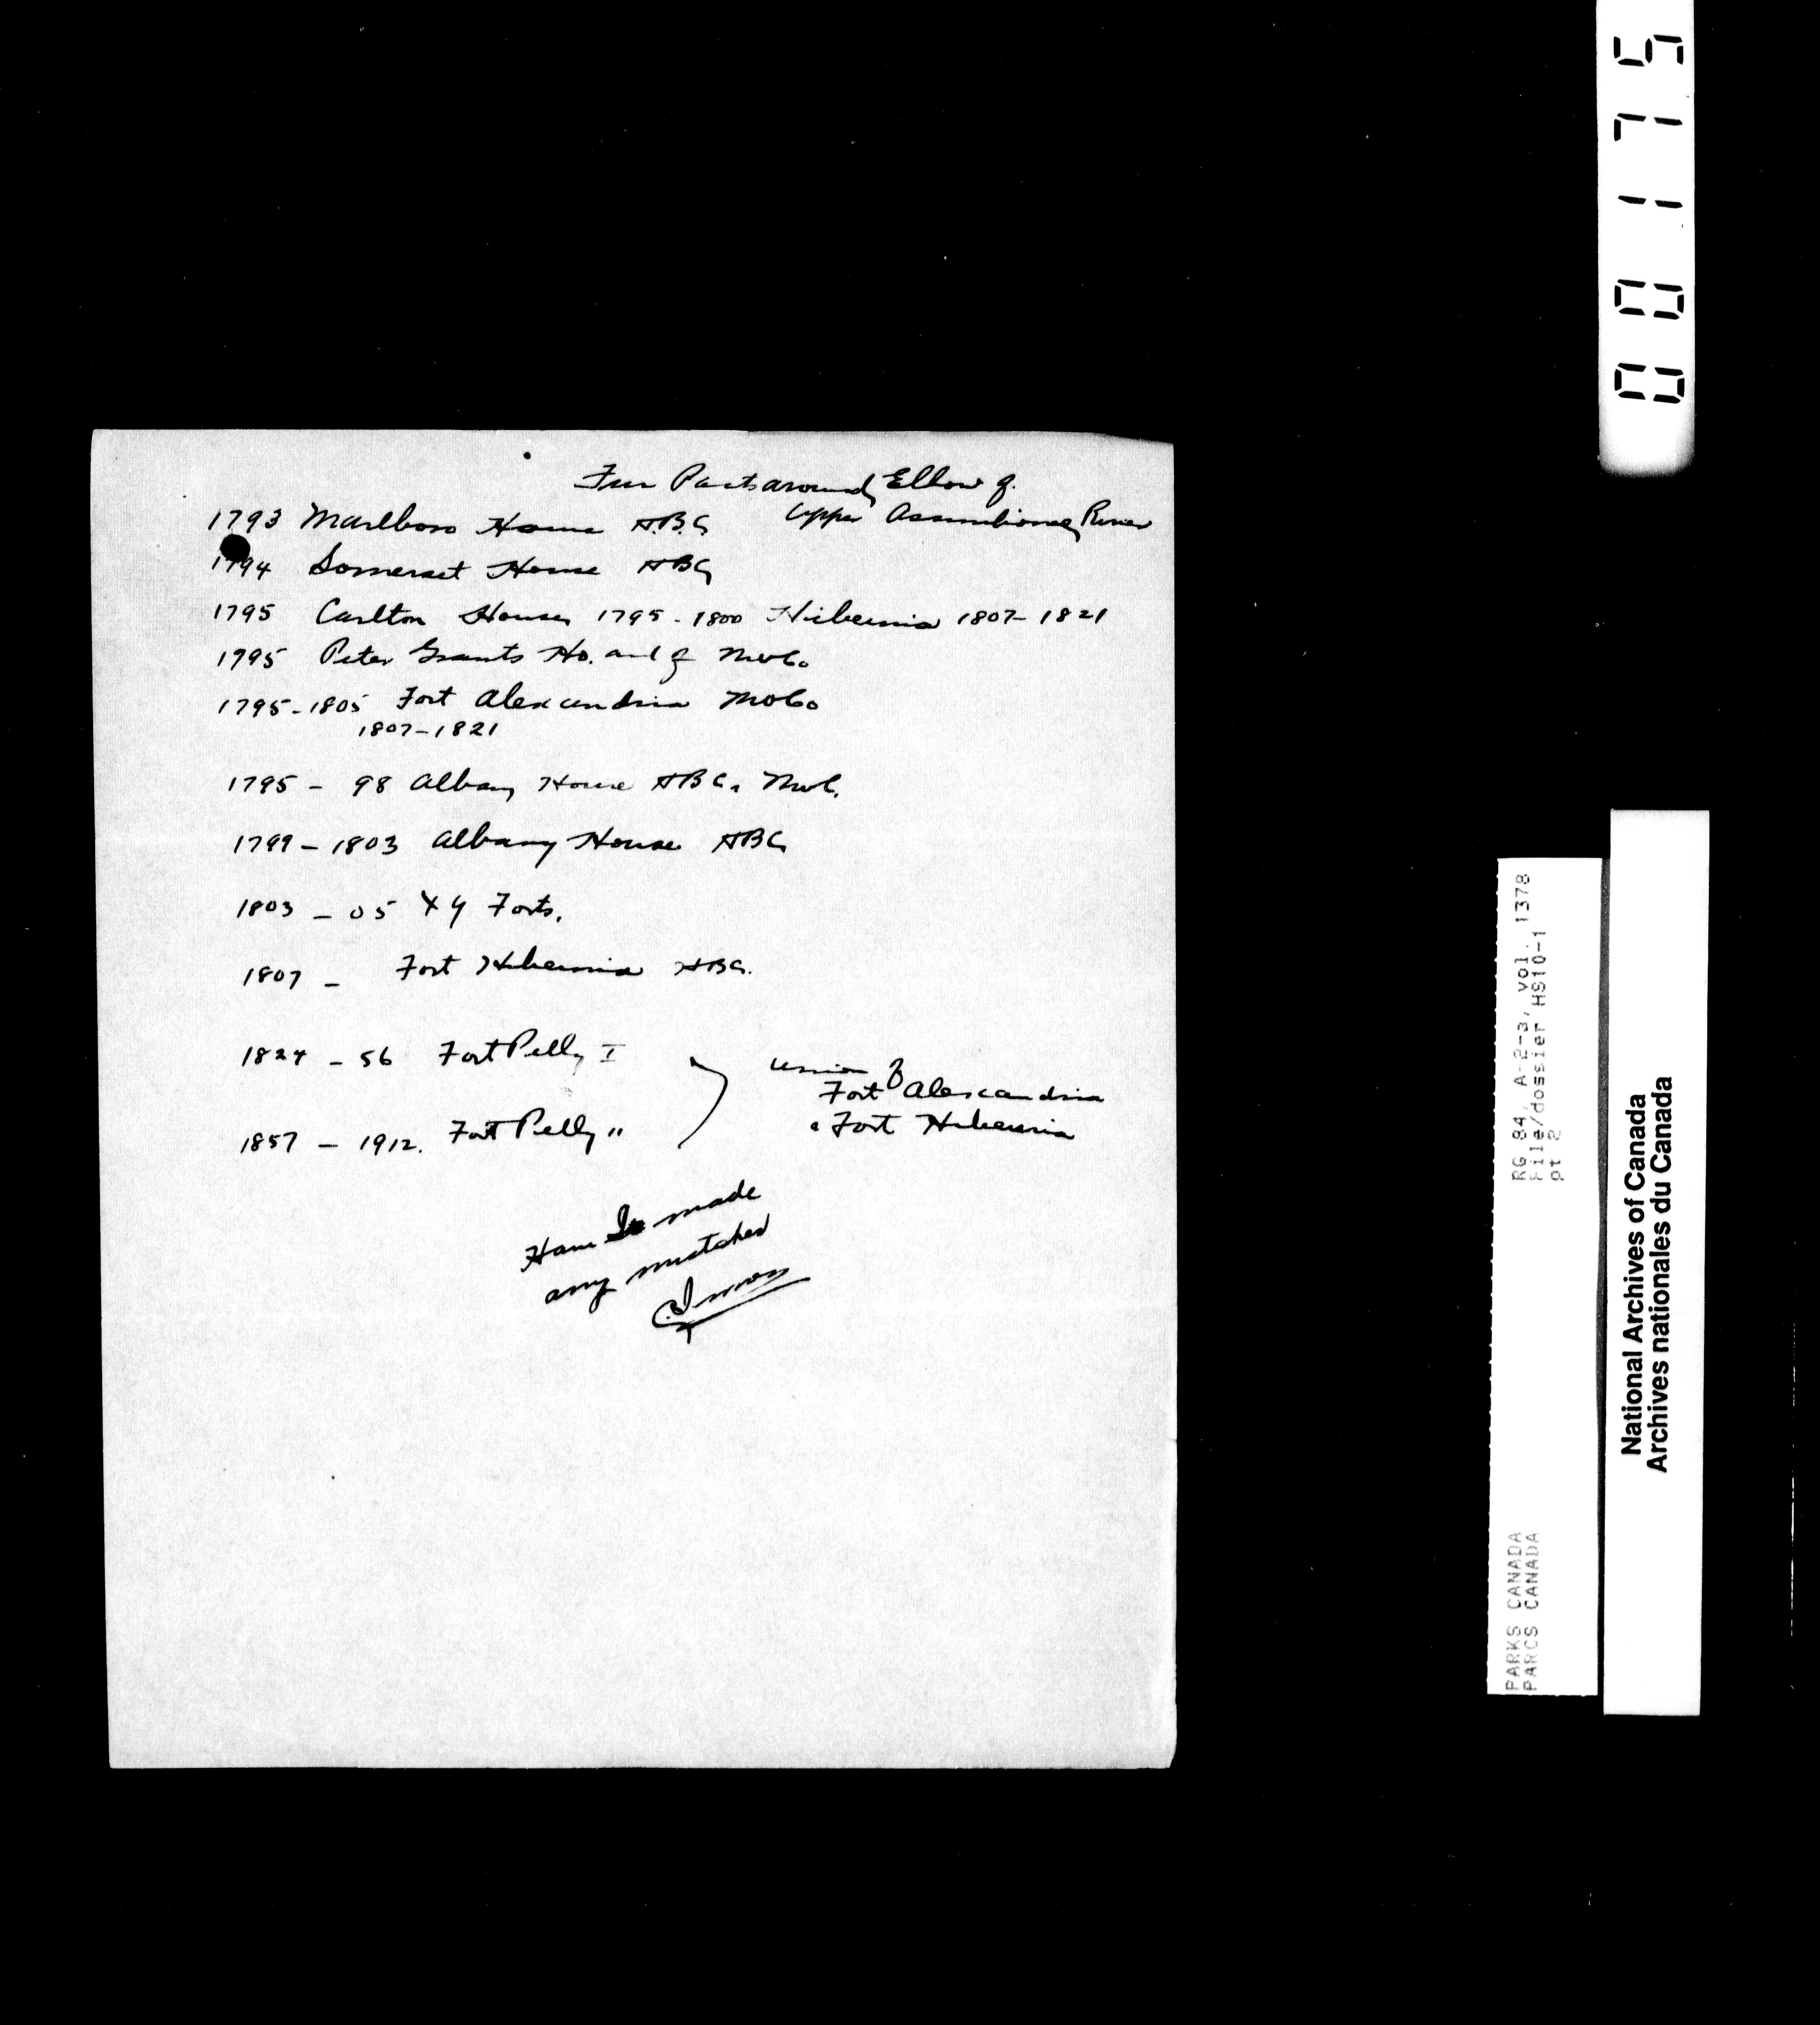 Fur Posts around Elbow of
Upper Assiniboine River
1793 Marlboro House H.B.C.
1794 Somerset House HBC
1795 Carlton House 1795-1800 Hibernia 1807-1821
1795 Peter Grants Ho. and of NWCo
1795-1805 Fort Alexandria NWCo
1807-1821
1795 - 98 Albany House HBC. NWC.
1799 - 1803 Albany House HBC
1803 - 05 XY Forts.
1807 - Fort Hibernia HBC.
1824 - 56 Fort Pelly I
1857 - 1912. Fort Pelly "
Union of
Fort Alexandria
& Fort Hibernia
Have I made
any mistakes
00175
RG 84, A-2-a, vol. 1378
File/dossier HS10-1
pt 2
PARKS CANADA
PARCS CANADA
National Archives of Canada
Archives nationales du Canada